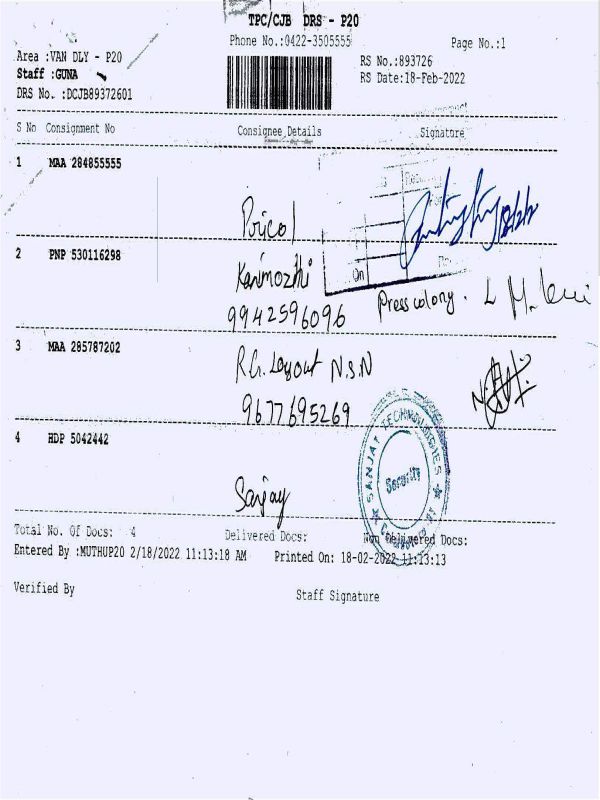 TPC/CJB DRS - P20
Phone No.:0422-3505555
Page No.:1
Area :VAN DLY - P20
RS No.:893726
Staff :GUNA
RS Date:18-Feb-2022
DRS No. :DCJB89372601
S No Consignment No Consignee Details Signature
1 MAA 284855555
Pricol
2 PNP 530116298
Kanimozhi
On
Press colony.
9942596096
3 MAA 285787202
R.G. Layout N.S.N
9677695269
4 HDP 5042442
SANJAY TECHNOLOGIES
Security
Sanjay
Total No. Of Docs: 4 Delivered Docs: Non Delivered Docs:
Entered By :MUTHUP20 2/18/2022 11:13:18 AM Printed On: 18-02-2022 11:13:13
Verified By Staff Signature